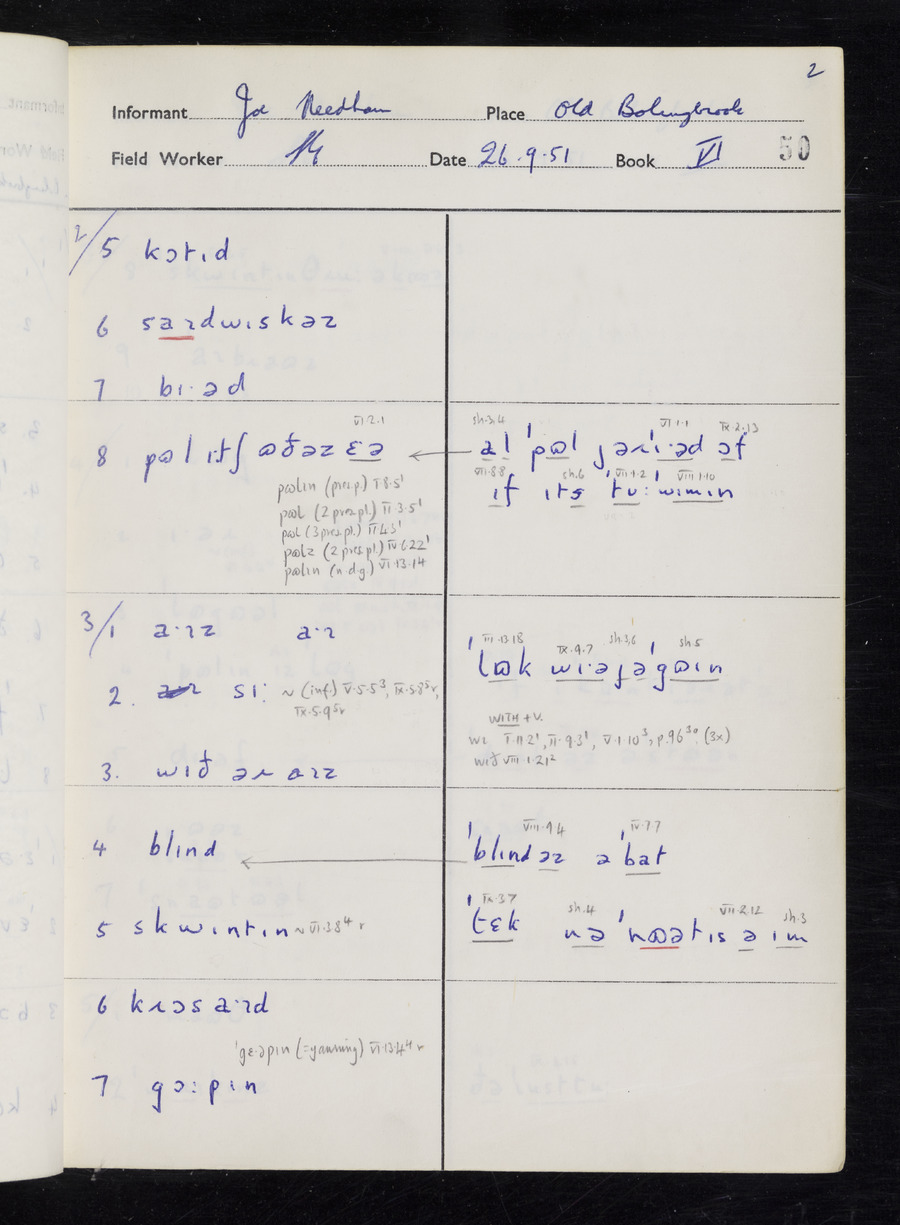 2
Informant Joe Needham Place Old Bolingbrook
Field Worker Date 26.9.51 Book VI 50
2/5 kɔtɪd
6 sandwɪskəz
7 bɪ·əd
8 pʊl ɪtʃ ʊðəz ɛə VI.2.1
pʊlin (pres.p.) I.8.5¹
pʊl (2 pres.pl.) II.3.5¹
pʊl (3 pres.pl.) II.4.3¹
pʊlz (2 pres.pl.) IV.6.22¹
pʊlin (n.d.g.) VI.13.14
sh.3,4 VI.1.1 IX.2.13
al ˈpʊl jəɹ ˈɪ·əd ɔf
VII.8.8 sh.6 VII.1.2 VIII.1.10
ɪf ɪts ˈtʊ: ˈwɪmɪn
3/1 a·ɪz a·ɪ
2. sɪ: ~ (inf.) V.5.5³, IX.5.8⁵r,
IX.5.9⁵r
3. wɪð əɹ aɪz
III.13.18 IX.9.7 sh.3,6 sh.5
ˈlʊk wɪ·ə jə ˈgʊɪn
WITH + V.
wɪ I.11.2¹, II.9.3¹, V.1.10³, p.96³⁰. (3x)
wɪð VIII.1.21²
4 blɪnd
VIII.9.4 IV.7.7
ˈblɪnd əz ə ˈbat
5 skwɪntɪn ~ VI.3.8⁴ r
IX.3.7 sh.4 VII.2.12 sh.3
ˈtɛk nə ˈnʊətɪs ə ɪm
6 kɹɔs a·ɪd
ˈgɛ·əpɪn (= yawning) VI.13.4⁴ r
7 gɔ:pɪn